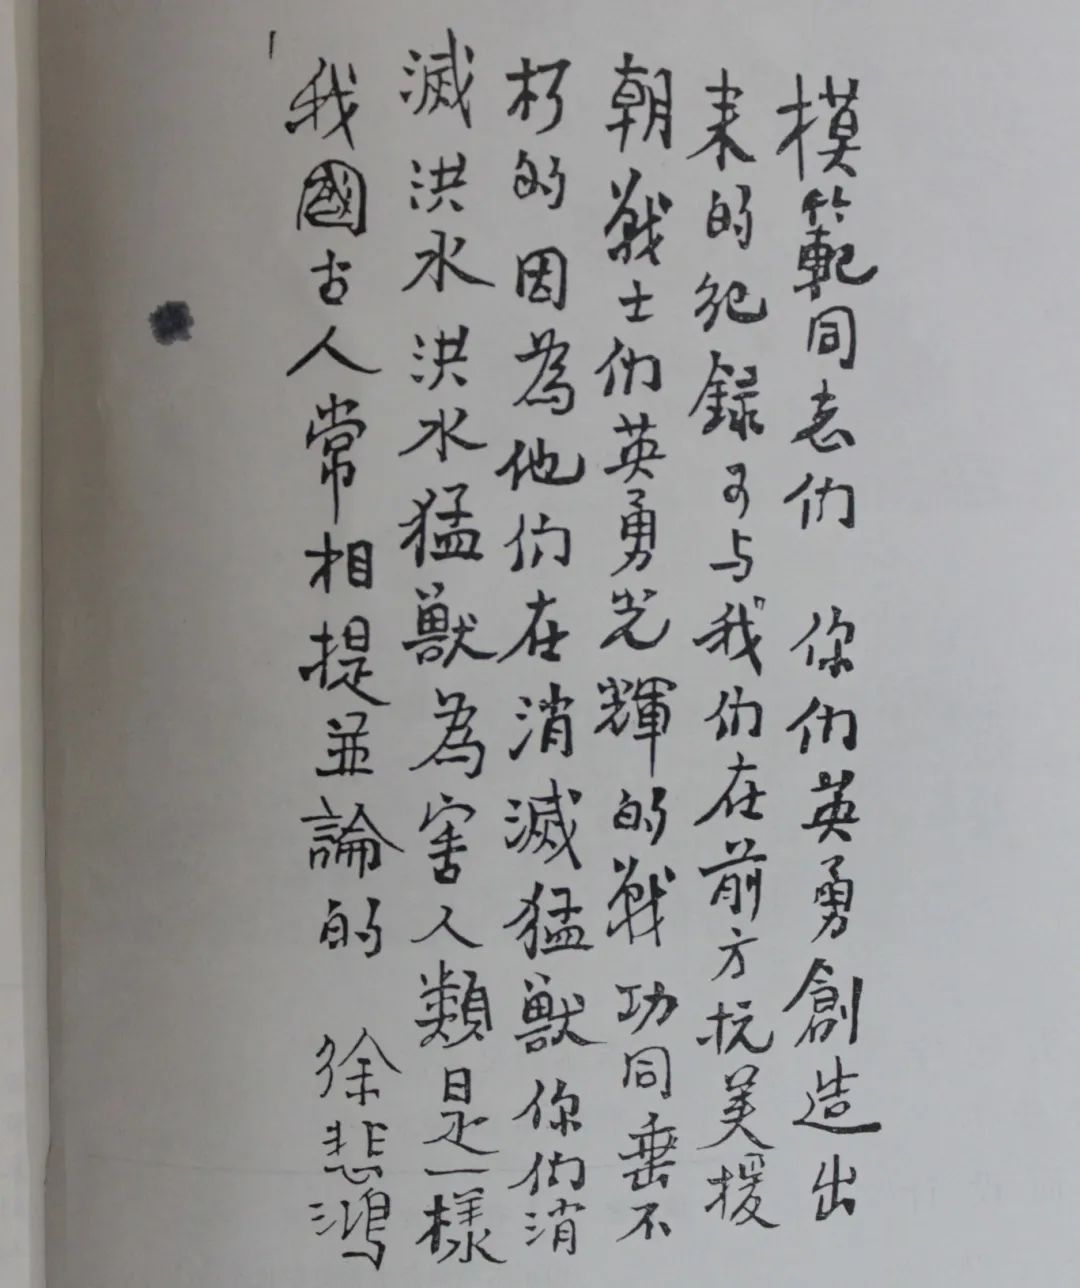 模範同志们 你们英勇創造出
来的纪録可与我们在前方抗美援
朝戦士们英勇光輝的戦功同垂不
朽的因為他们在消滅猛獸你们消
滅洪水洪水猛獸為害人類是一樣
我國古人常相提並論的 徐悲鴻